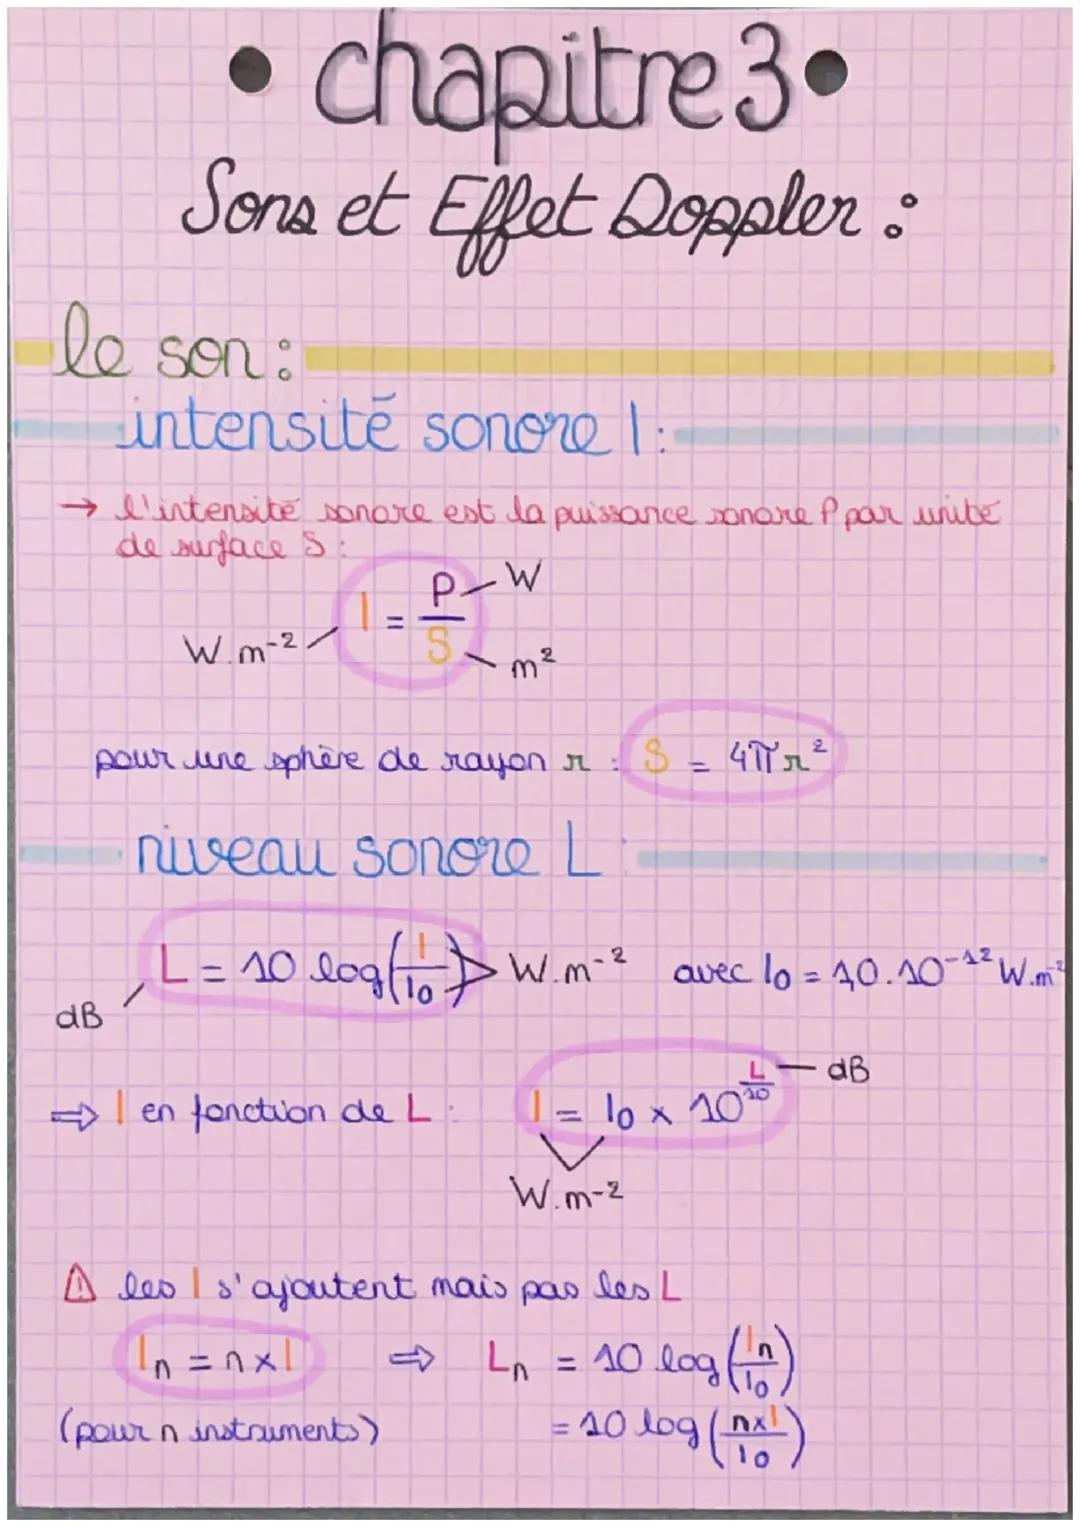 • chapitre 3 •
Sons et Effet Doppler :
le son :
intensité sonore I :
→ l'intensité sonore est la puissance sonore P par unité
de surface S :
I = P/S
W
W.m-²
m²
pour une sphère de rayon r : S = 4πr²
niveau sonore L :
L = 10 log(I/I₀) > W.m-² avec I₀ = 10.10-¹² W.m-²
dB
⇒ I en fonction de L : I = I₀ × 10^(L/10) — dB
W.m-²
⚠ les I s'ajoutent mais pas les L
In = n × I ⇒ Ln = 10 log(In/I₀)
(pour n instruments) = 10 log(n×I/I₀)